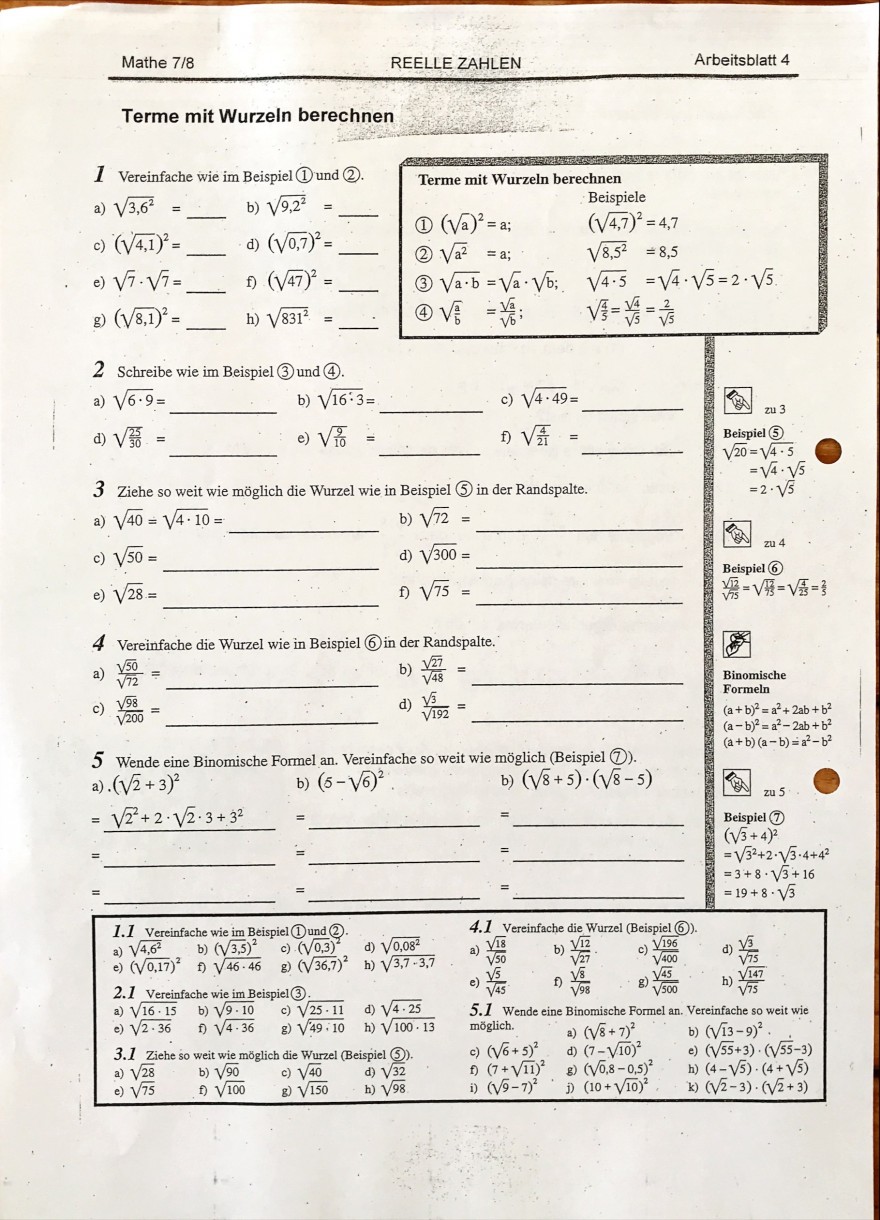 Mathe 7/8 REELLE ZAHLEN Arbeitsblatt 4
Terme mit Wurzeln berechnen
1 Vereinfache wie im Beispiel ① und ②.
a) √3,6² = ____ b) √9,2² = ____
c) (√4,1)² = ____ d) (√0,7)² = ____
e) √7 · √7 = ____ f) (√47)² = ____
g) (√8,1)² = ____ h) √831² = ____
Terme mit Wurzeln berechnen
Beispiele
① (√a)² = a; (√4,7)² = 4,7
② √a² = a; √8,5² = 8,5
③ √a·b = √a · √b; √4·5 = √4 · √5 = 2 · √5
④ √a/b = √a/√b; √4/5 = √4/√5 = 2/√5
2 Schreibe wie im Beispiel ③ und ④.
a) √6·9 = ____ b) √16·3 = ____ c) √4·49 = ____
d) √25/30 = ____ e) √9/10 = ____ f) √4/21 = ____
3 Ziehe so weit wie möglich die Wurzel wie in Beispiel ⑤ in der Randspalte.
a) √40 = √4·10 = ____ b) √72 = ____
c) √50 = ____ d) √300 = ____
e) √28 = ____ f) √75 = ____
4 Vereinfache die Wurzel wie in Beispiel ⑥ in der Randspalte.
a) √50/√72 = ____ b) √27/√48 = ____
c) √98/√200 = ____ d) √3/√192 = ____
5 Wende eine Binomische Formel an. Vereinfache so weit wie möglich (Beispiel ⑦).
a) (√2 + 3)² b) (5 − √6)² b) (√8 + 5) · (√8 − 5)
= √2² + 2 · √2 · 3 + 3² = ____ = ____
= ____ = ____ = ____
= ____ = ____ = ____
zu 3
Beispiel ⑤
√20 = √4 · 5
= √4 · √5
= 2 · √5
zu 4
Beispiel ⑥
√12/√75 = √12/75 = √4/25 = 2/5
Binomische
Formeln
(a + b)² = a² + 2ab + b²
(a − b)² = a² − 2ab + b²
(a + b) (a − b) = a² − b²
zu 5
Beispiel ⑦
(√3 + 4)²
= √3² + 2 · √3 · 4 + 4²
= 3 + 8 · √3 + 16
= 19 + 8 · √3
1.1 Vereinfache wie im Beispiel ① und ②.
a) √4,6² b) (√3,5)² c) (√0,3)² d) √0,08²
e) (√0,17)² f) √46 · 46 g) (√36,7)² h) √3,7 · 3,7
2.1 Vereinfache wie im Beispiel ③.
a) √16 · 15 b) √9 · 10 c) √25 · 11 d) √4 · 25
e) √2 · 36 f) √4 · 36 g) √49 · 10 h) √100 · 13
3.1 Ziehe so weit wie möglich die Wurzel (Beispiel ⑤).
a) √28 b) √90 c) √40 d) √32
e) √75 f) √100 g) √150 h) √98
4.1 Vereinfache die Wurzel (Beispiel ⑥).
a) √18/√50 b) √12/√27 c) √196/√400 d) √3/√75
e) √5/√45 f) √8/√98 g) √45/√500 h) √147/√75
5.1 Wende eine Binomische Formel an. Vereinfache so weit wie
möglich. a) (√8 + 7)² b) (√13 − 9)²
c) (√6 + 5)² d) (7 − √10)² e) (√55+3) · (√55−3)
f) (7 + √11)² g) (√0,8 − 0,5)² h) (4 − √5) · (4 + √5)
i) (√9 − 7)² j) (10 + √10)² k) (√2 − 3) · (√2 + 3)